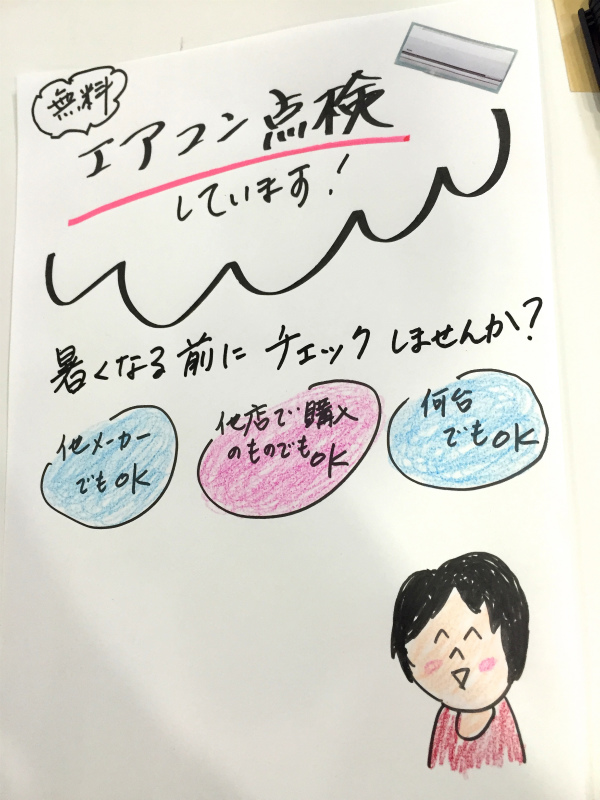 無料
エアコン点検
しています!
暑くなる前にチェックしませんか?
他メーカー
でもOK
他店で購入
のものでも
OK
何台
でもOK